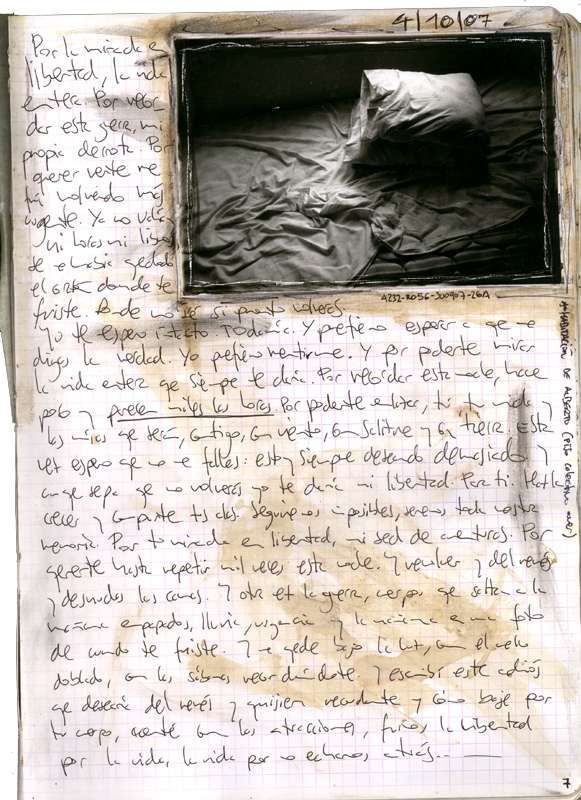 4/10/07
Por la mirada en
libertad, la vida
entera. Por recor
dar esta guerra, mi
propia derrota. Por
querer verte me
fui volviendo más
urgente. Ya no valía
ni horas ni
se había quedado
el donde te
fuiste. Donde no sé si pronto volverás.
4232-R056-300907-26A
Yo te espero intacto TODAVÍA. Y prefiero esperar a que me
digas la verdad. Yo prefiero mentirme. Y por poderte mirar
la vida entera que siempre te daría. Por recordar esta noche, hace
poco y parecen miles las horas. Por poderte tu y
las que serán, contigo, con viento, con salitre y con tierra. Esta
vez espero que no me falles: estoy siempre deseando demasiado y
aunque sepa que no volverás yo te daría mi libertad. Para ti. Hazla
crecer y comparte tus Seguiremos imposibles, seremos toda nuestra
memoria. Por tu mirada en libertad, mi sed de aventuras. Por
quererte hasta repetir mil veces esta noche. Y revolver y del revés
y desnudas las camas. Y otra vez la guerra, cuerpos que saltan a la
mañana empapados, lluvia, urgencia y la mañana en una foto
de cuando te fuiste. Y me quedé bajo la luz, con el
doblado, con las sábanas recordándote. Y escribí este adiós
que desearía del revés y quisiera recordarte y cómo bajé por
tu cuerpo, con las atracciones, fuimos la libertad
por la vida, la vida por no echarnos atrás...
HABITACIÓN DE ALBERTO
7